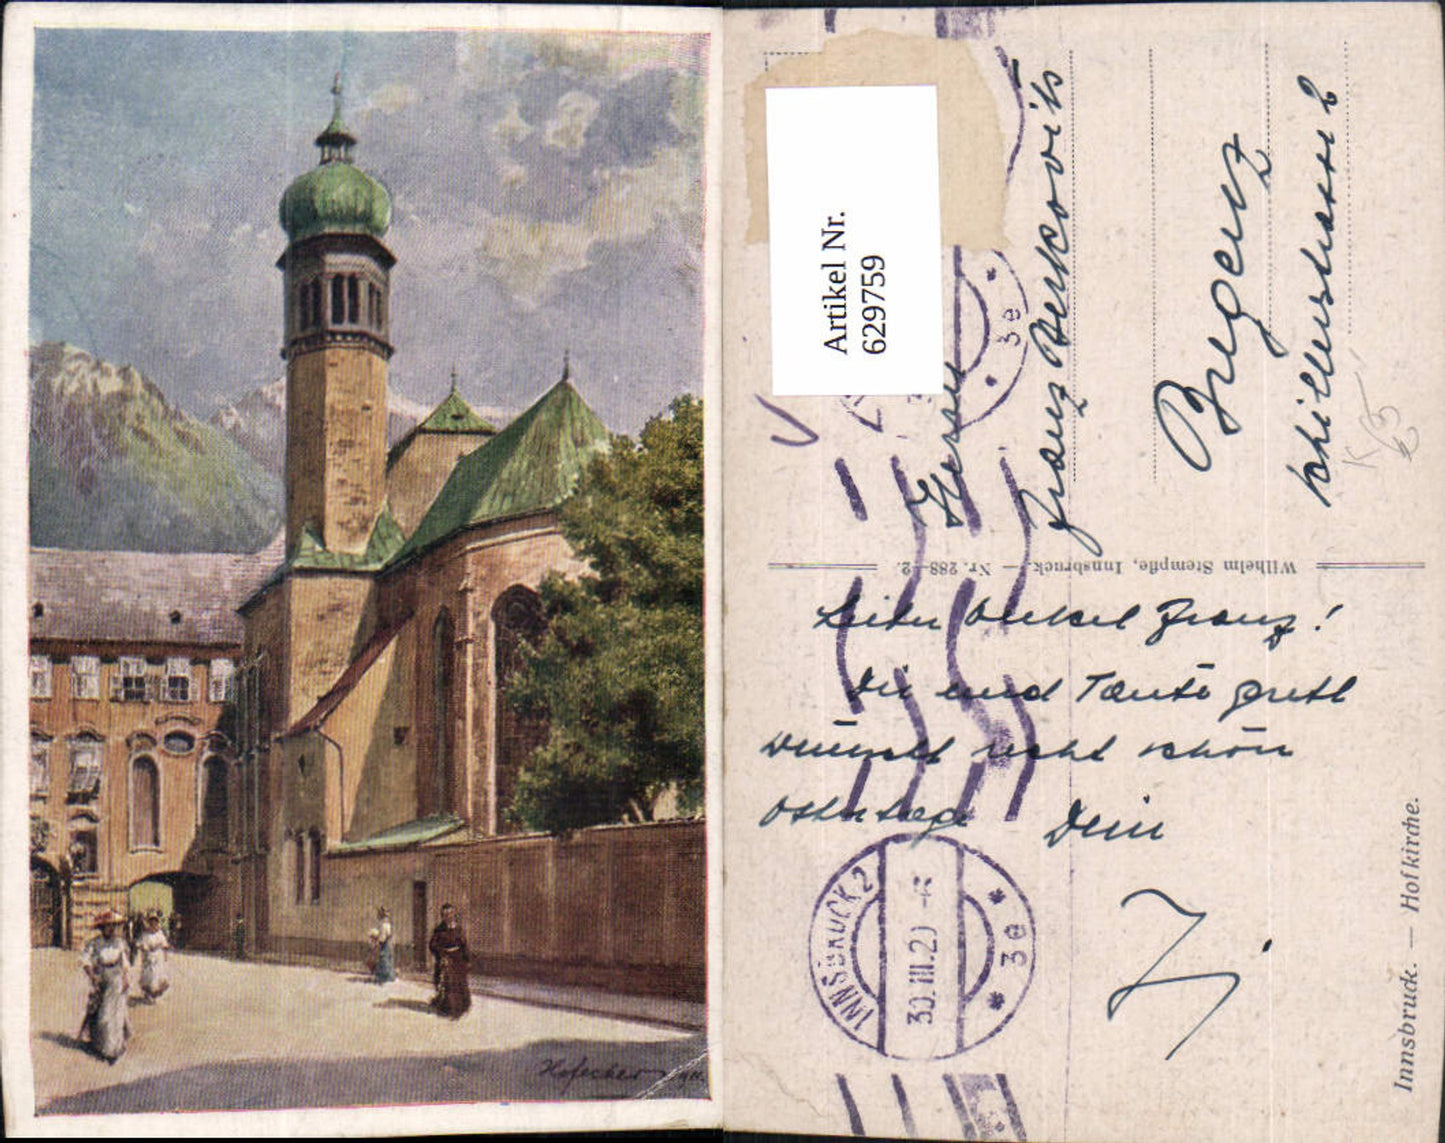 Hofecker
Artikel Nr.
629759
Herrn
Franz Berkovits
Bregenz
Schillerstrasse 2
Wilhelm Stempfle, Innsbruck. — Nr. 288—2.
Lieber Onkel Franz!
Dir und Tante Gretl
wünscht recht schöne
Ostertage Dein
INNSBRUCK 2
30.III.2
* 3e *
3e
Innsbruck. — Hofkirche.